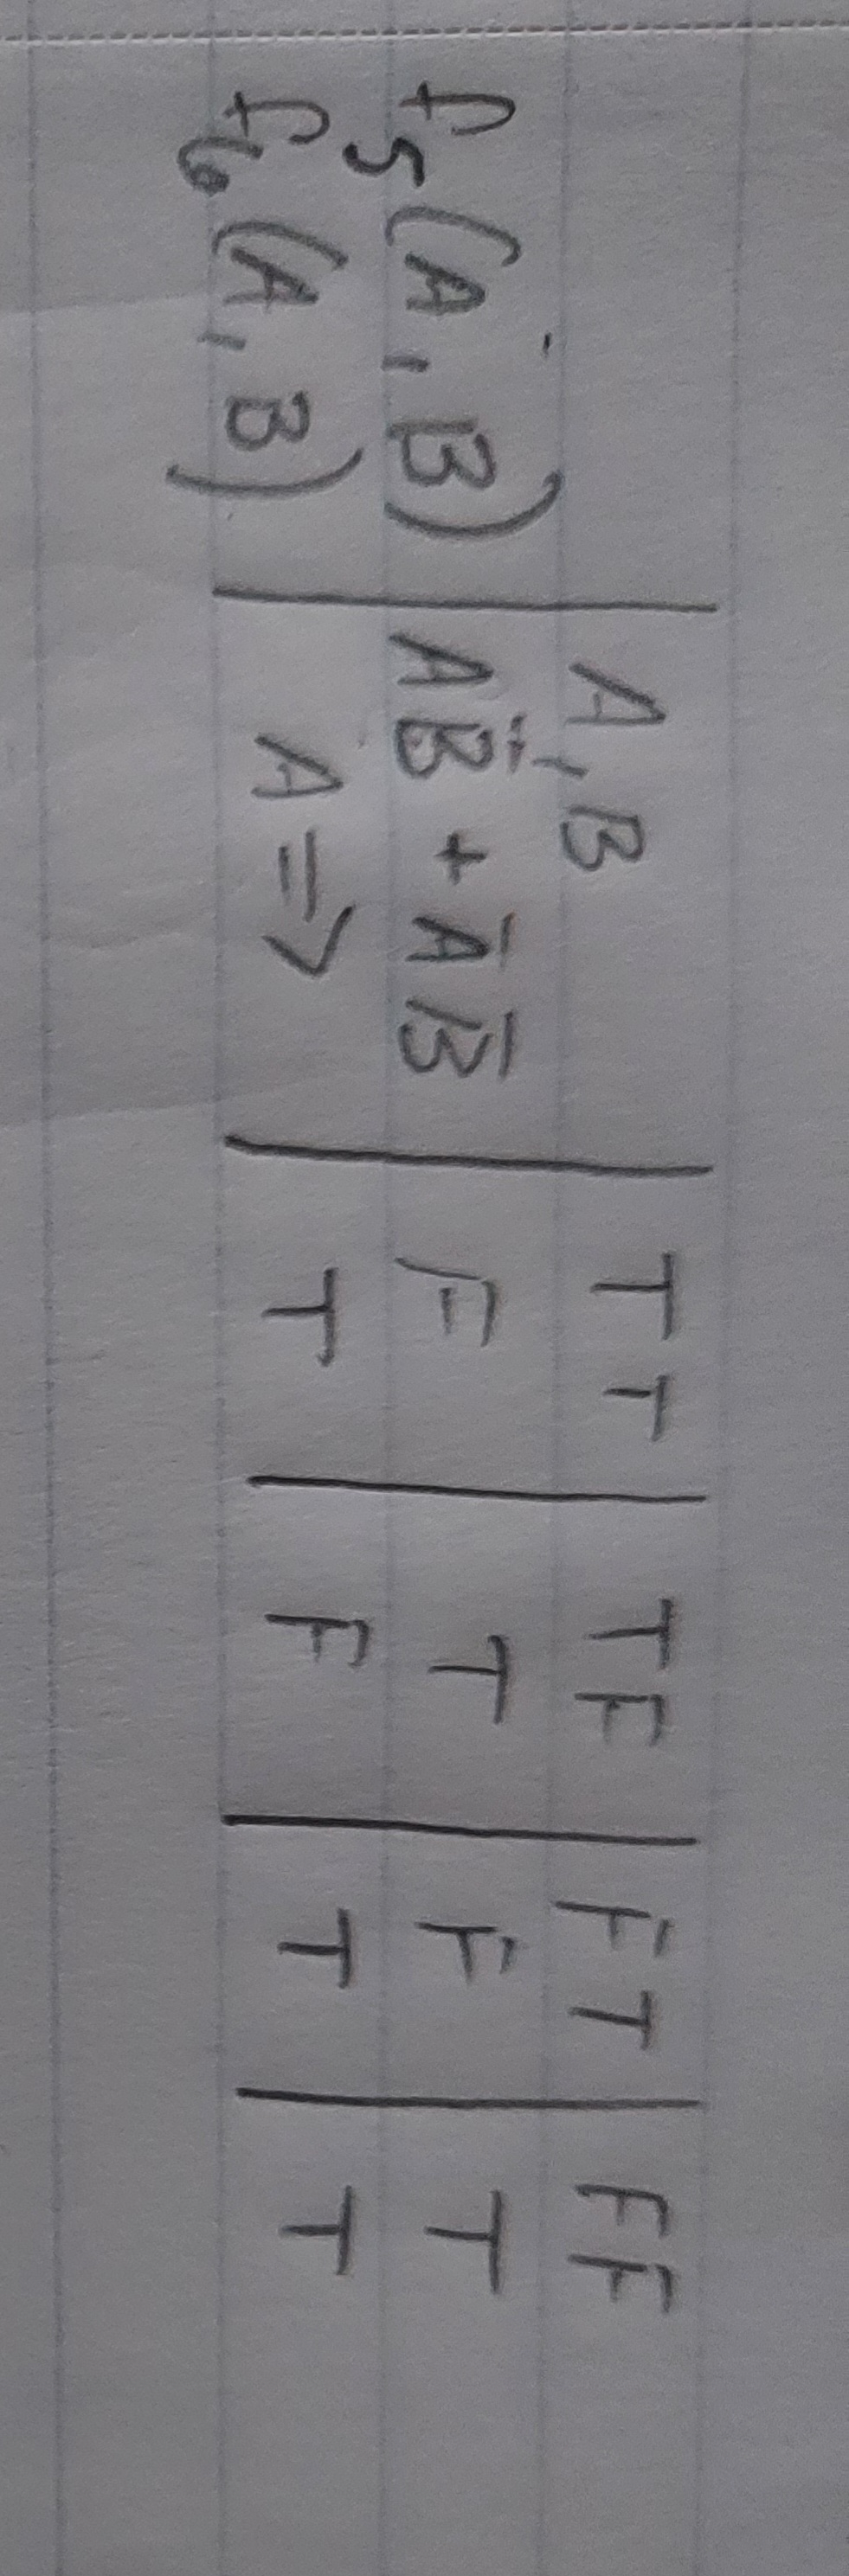 A, B | T T | T F | F T | F F
f₅(A, B) | A B̅ + A̅ B̅ | F | T | F | T
f₆(A, B) | A => | T | F | T | T